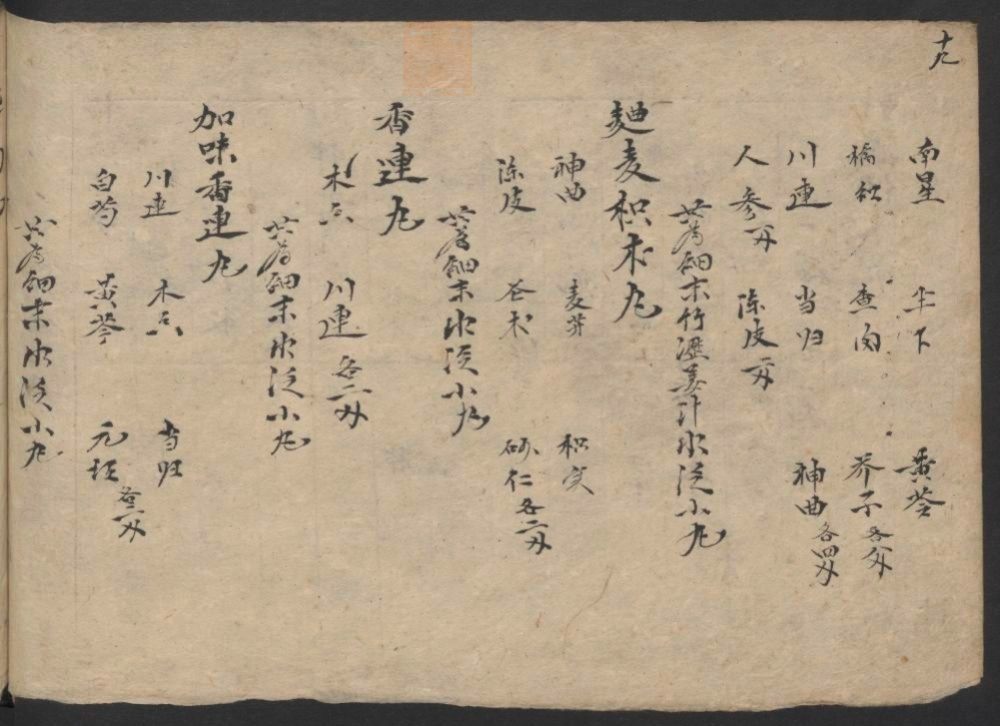 十九
南星 半下 黄芩
橘红 查肉 芥子各八分
川連 当归 神曲各四分
人参 陈皮
共为細末竹瀝姜汁水泛小丸
麯麦枳术丸
神曲 麦芽 枳实
陈皮 苍术 砂仁各二分
共为細末水泛小丸
香連丸
木香 川連各二分
共为細末水泛小丸
加味香連丸
川連 木香 当归
白芍 黄芩 元胡
共为細末水泛小丸